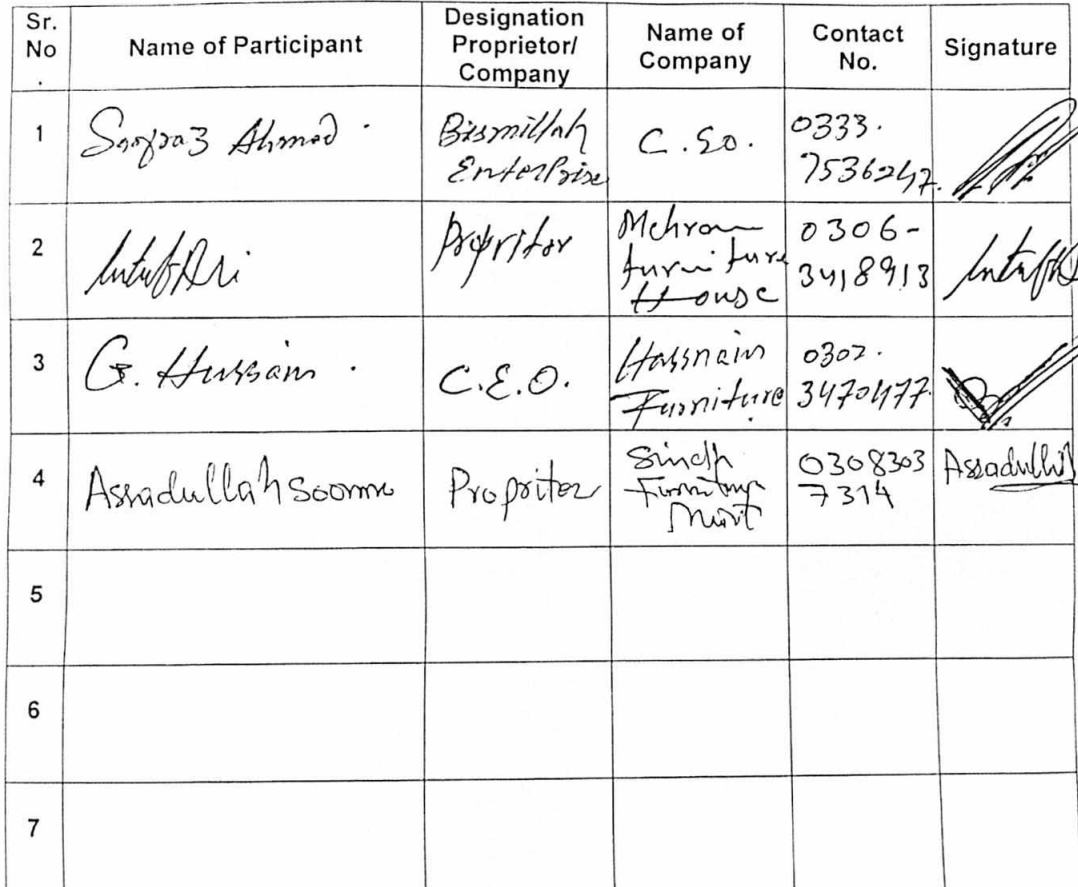 Sr. No . Name of Participant Designation Proprietor/ Company Name of Company Contact No. Signature
1 Sarfraz Ahmed . Bismillah Enterprise C.Eo. 0333. 7536247.
2 Propritor Mehran furniture House 0306- 3418913
3 G. Hussain . C.E.O. Hassnain Furniture 0302. 3470477.
4 Assadullah Soomro Propritor Sindh Furniture Mart 0308303 7314 Assadullah
5
6
7